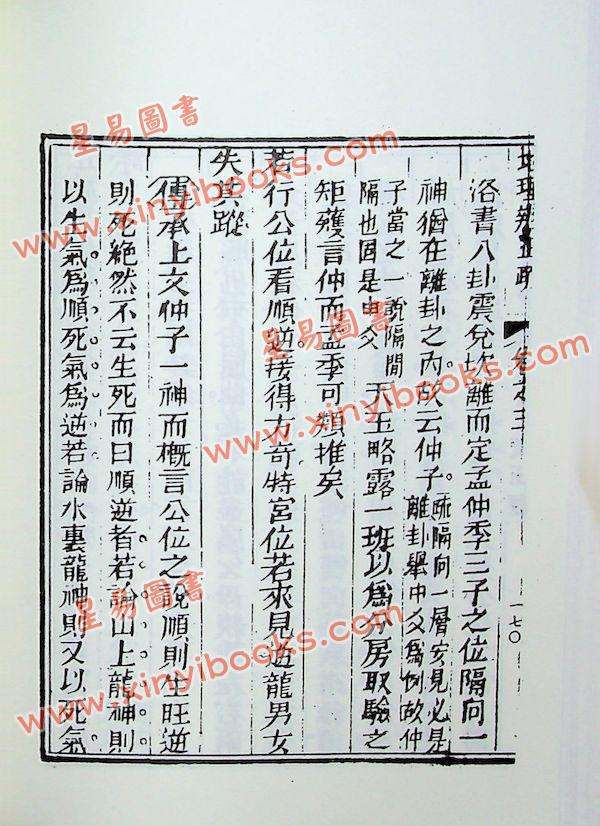 地理辨正疏
卷之三
一七〇
洛書八卦震兌坎離而定孟仲季三子之位隔向一
神猶在離卦之內故云仲子疏隔向一層安見必是
離卦舉中爻為例故仲
子當之一說隔間
隔也因是中爻天玉略露一班以為分房取驗之
矩矱言仲而孟季可類推矣
若行公位看順逆接得方奇特宮位若來見逆龍男女
失其蹤
傳承上文仲子一神而概言公位之說順則生旺逆
則死絕然不云生死而曰順逆者若論山上龍神則
以生氣為順死氣為逆若論水裏龍神則又以死氣
星易圖書
www.xinyibooks.com
星易圖書
www.xinyibooks.com
星易圖書
www.xinyibooks.com